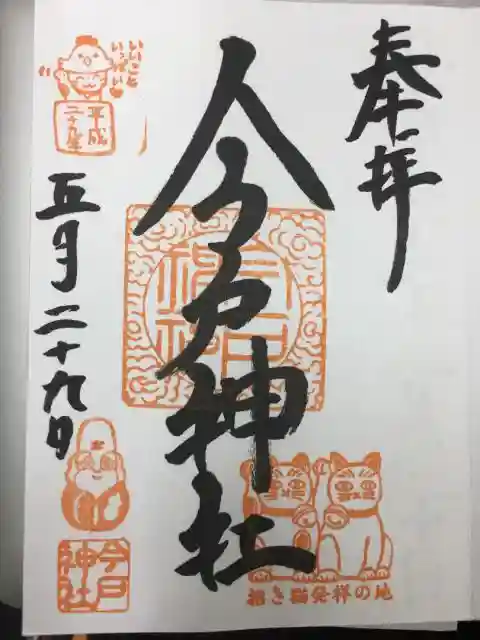 奉拝
今戸神社
いいこと
いっぱい
平成
二十九年
五月二十九日
今戸
神社
招き猫発祥の地